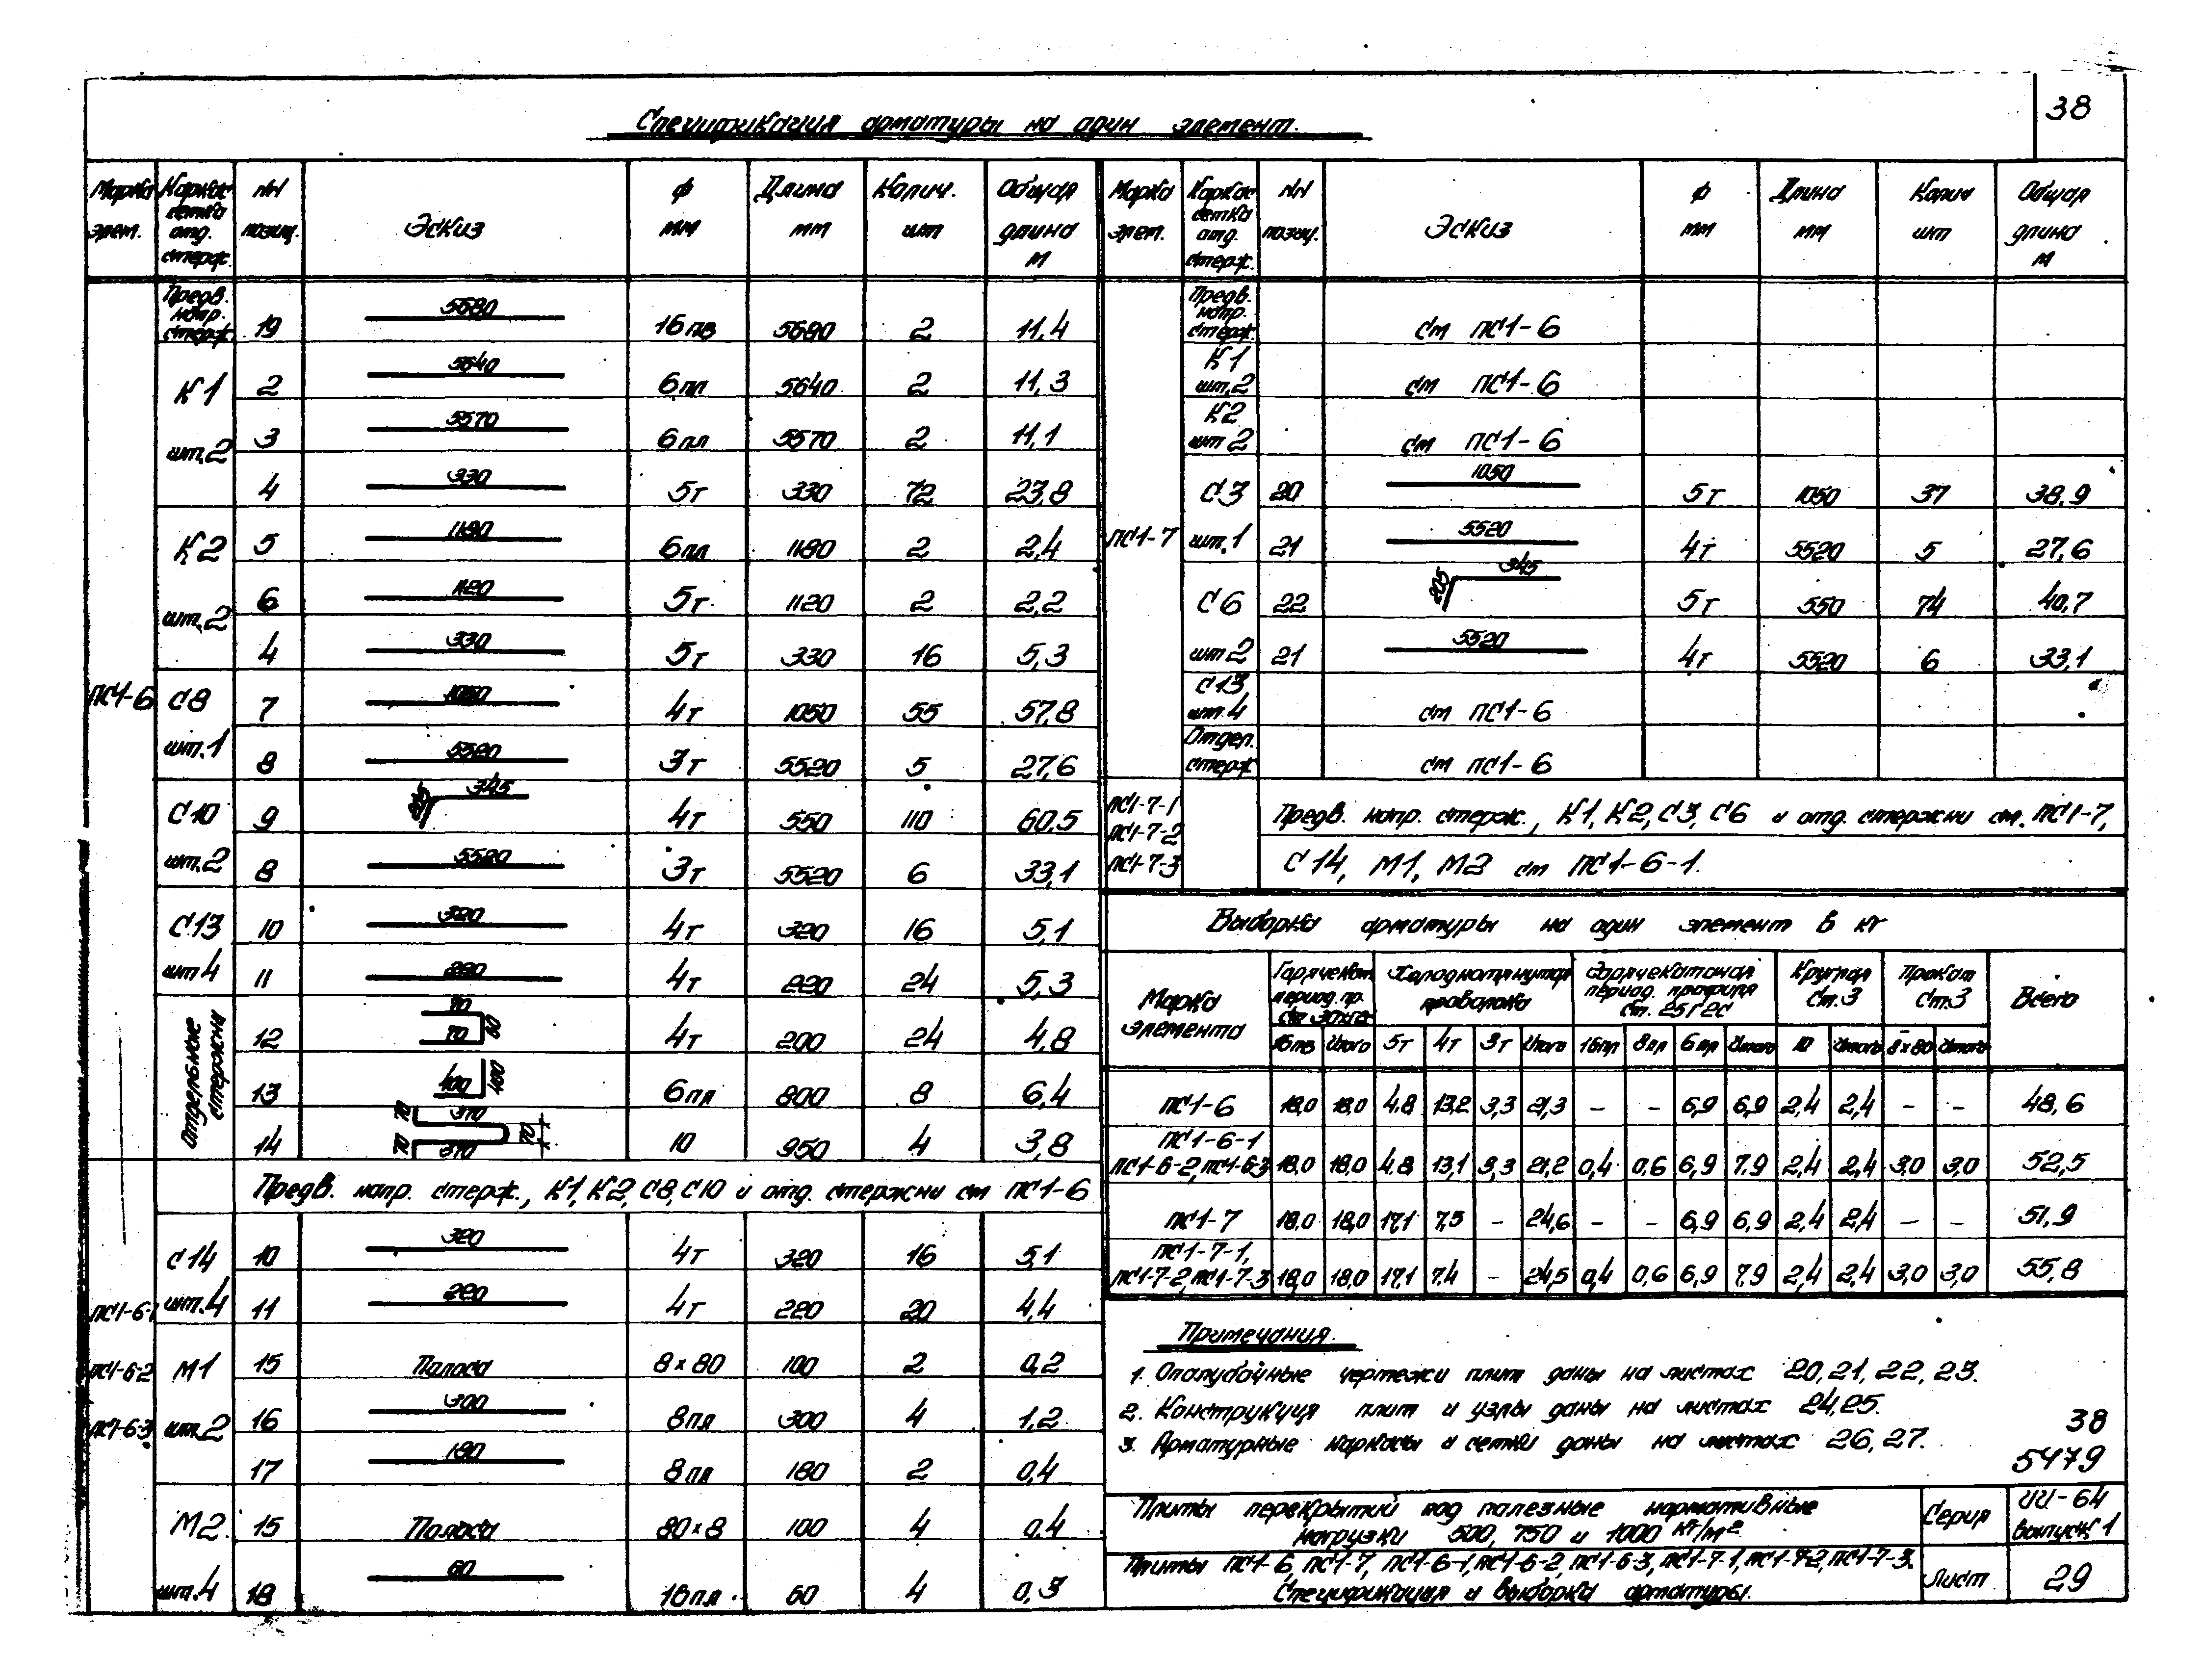 38
Спецификация арматуры на один элемент.
Марка элем. | Каркас сетка отд. стерж. | NN позиц. | Эскиз | Ф мм | Длина мм | Колич. шт | Общая длина м
ПС1-6
Предв. напр. стерж. | 19 | 5680 | 16пв | 5680 | 2 | 11,4
К1 шт.2 | 2 | 5640 | 6пл | 5640 | 2 | 11,3
3 | 5570 | 6пл | 5570 | 2 | 11,1
4 | 330 | 5т | 330 | 72 | 23,8
К2 шт.2 | 5 | 1180 | 6пл | 1180 | 2 | 2,4
6 | 1120 | 5т | 1120 | 2 | 2,2
4 | 330 | 5т | 330 | 16 | 5,3
С8 шт.1 | 7 | 1050 | 4т | 1050 | 55 | 57,8
8 | 5520 | 3т | 5520 | 5 | 27,6
С10 шт.2 | 9 | 205 345 | 4т | 550 | 110 | 60,5
8 | 5520 | 3т | 5520 | 6 | 33,1
С13 шт 4 | 10 | 320 | 4т | 320 | 16 | 5,1
11 | 220 | 4т | 220 | 24 | 5,3
Отдельные стержни | 12 | 70 70 60 | 4т | 200 | 24 | 4,8
13 | 400 400 | 6пл | 800 | 8 | 6,4
14 | 70 370 70 370 70 | 10 | 950 | 4 | 3,8
ПС1-6-1
ПС1-6-2
ПС1-6-3
Предв. напр. стерж., К1, К2, С8, С10 и отд. стержни см ПС1-6
С14 шт.4 | 10 | 320 | 4т | 320 | 16 | 5,1
11 | 220 | 4т | 220 | 20 | 4,4
М1 шт.2 | 15 | Полоса | 8×80 | 100 | 2 | 0,2
16 | 300 | 8пл | 300 | 4 | 1,2
17 | 180 | 8пл | 180 | 2 | 0,4
М2 шт.4 | 15 | Полоса | 80×8 | 100 | 4 | 0,4
18 | 60 | 16пл | 60 | 4 | 0,3
Марка элем. | Каркас сетка отд. стерж. | NN позиц. | Эскиз | Ф мм | Длина мм | Колич шт | Общая длина м
ПС1-7
Предв. напр. стерж. | см ПС1-6
К1 шт.2 | см ПС1-6
К2 шт 2 | см ПС1-6
С3 шт.1 | 20 | 1050 | 5т | 1050 | 37 | 38,9
21 | 5520 | 4т | 5520 | 5 | 27,6
С6 шт 2 | 22 | 205 345 | 5т | 550 | 74 | 40,7
21 | 5520 | 4т | 5520 | 6 | 33,1
С13 шт.4 | см ПС1-6
Отдел. стерж | см ПС1-6
ПС1-7-1
ПС1-7-2
ПС1-7-3
Предв. напр. стерж., К1, К2, С3, С6 и отд. стержни см. ПС1-7,
С14, М1, М2 см ПС1-6-1.
Выборка арматуры на один элемент в кг
Марка элемента | Горячекат. период. пр. Ст 30ХГ2С | Холоднотянутая проволока | Горячекатаная период. профиля Ст. 25Г2С | Круглая Ст.3 | Прокат Ст.3 | Всего
16пв | Итого | 5т | 4т | 3т | Итого | 16пл | 8пл | 6пл | Итого | 10 | Итого | 8×80 | Итого
ПС1-6 | 18,0 | 18,0 | 4,8 | 13,2 | 3,3 | 21,3 | – | – | 6,9 | 6,9 | 2,4 | 2,4 | – | – | 48,6
ПС1-6-1 ПС1-6-2, ПС1-6-3 | 18,0 | 18,0 | 4,8 | 13,1 | 3,3 | 21,2 | 0,4 | 0,6 | 6,9 | 7,9 | 2,4 | 2,4 | 3,0 | 3,0 | 52,5
ПС1-7 | 18,0 | 18,0 | 17,1 | 7,5 | – | 24,6 | – | – | 6,9 | 6,9 | 2,4 | 2,4 | – | – | 51,9
ПС1-7-1, ПС1-7-2, ПС1-7-3 | 18,0 | 18,0 | 17,1 | 7,4 | – | 24,5 | 0,4 | 0,6 | 6,9 | 7,9 | 2,4 | 2,4 | 3,0 | 3,0 | 55,8
Примечания.
1. Опалубочные чертежи плит даны на листах 20, 21, 22, 23.
2. Конструкция плит и узлы даны на листах 24, 25.
3. Арматурные каркасы и сетки даны на листах 26, 27.
38
5479
Плиты перекрытий под полезные нормативные
нагрузки 500, 750 и 1000 кг/м²
Серия
ИИ-64
выпуск 1
Плиты ПС1-6, ПС1-7, ПС1-6-1, ПС1-6-2, ПС1-6-3, ПС1-7-1, ПС1-7-2, ПС1-7-3.
Спецификация и выборка арматуры.
Лист
29